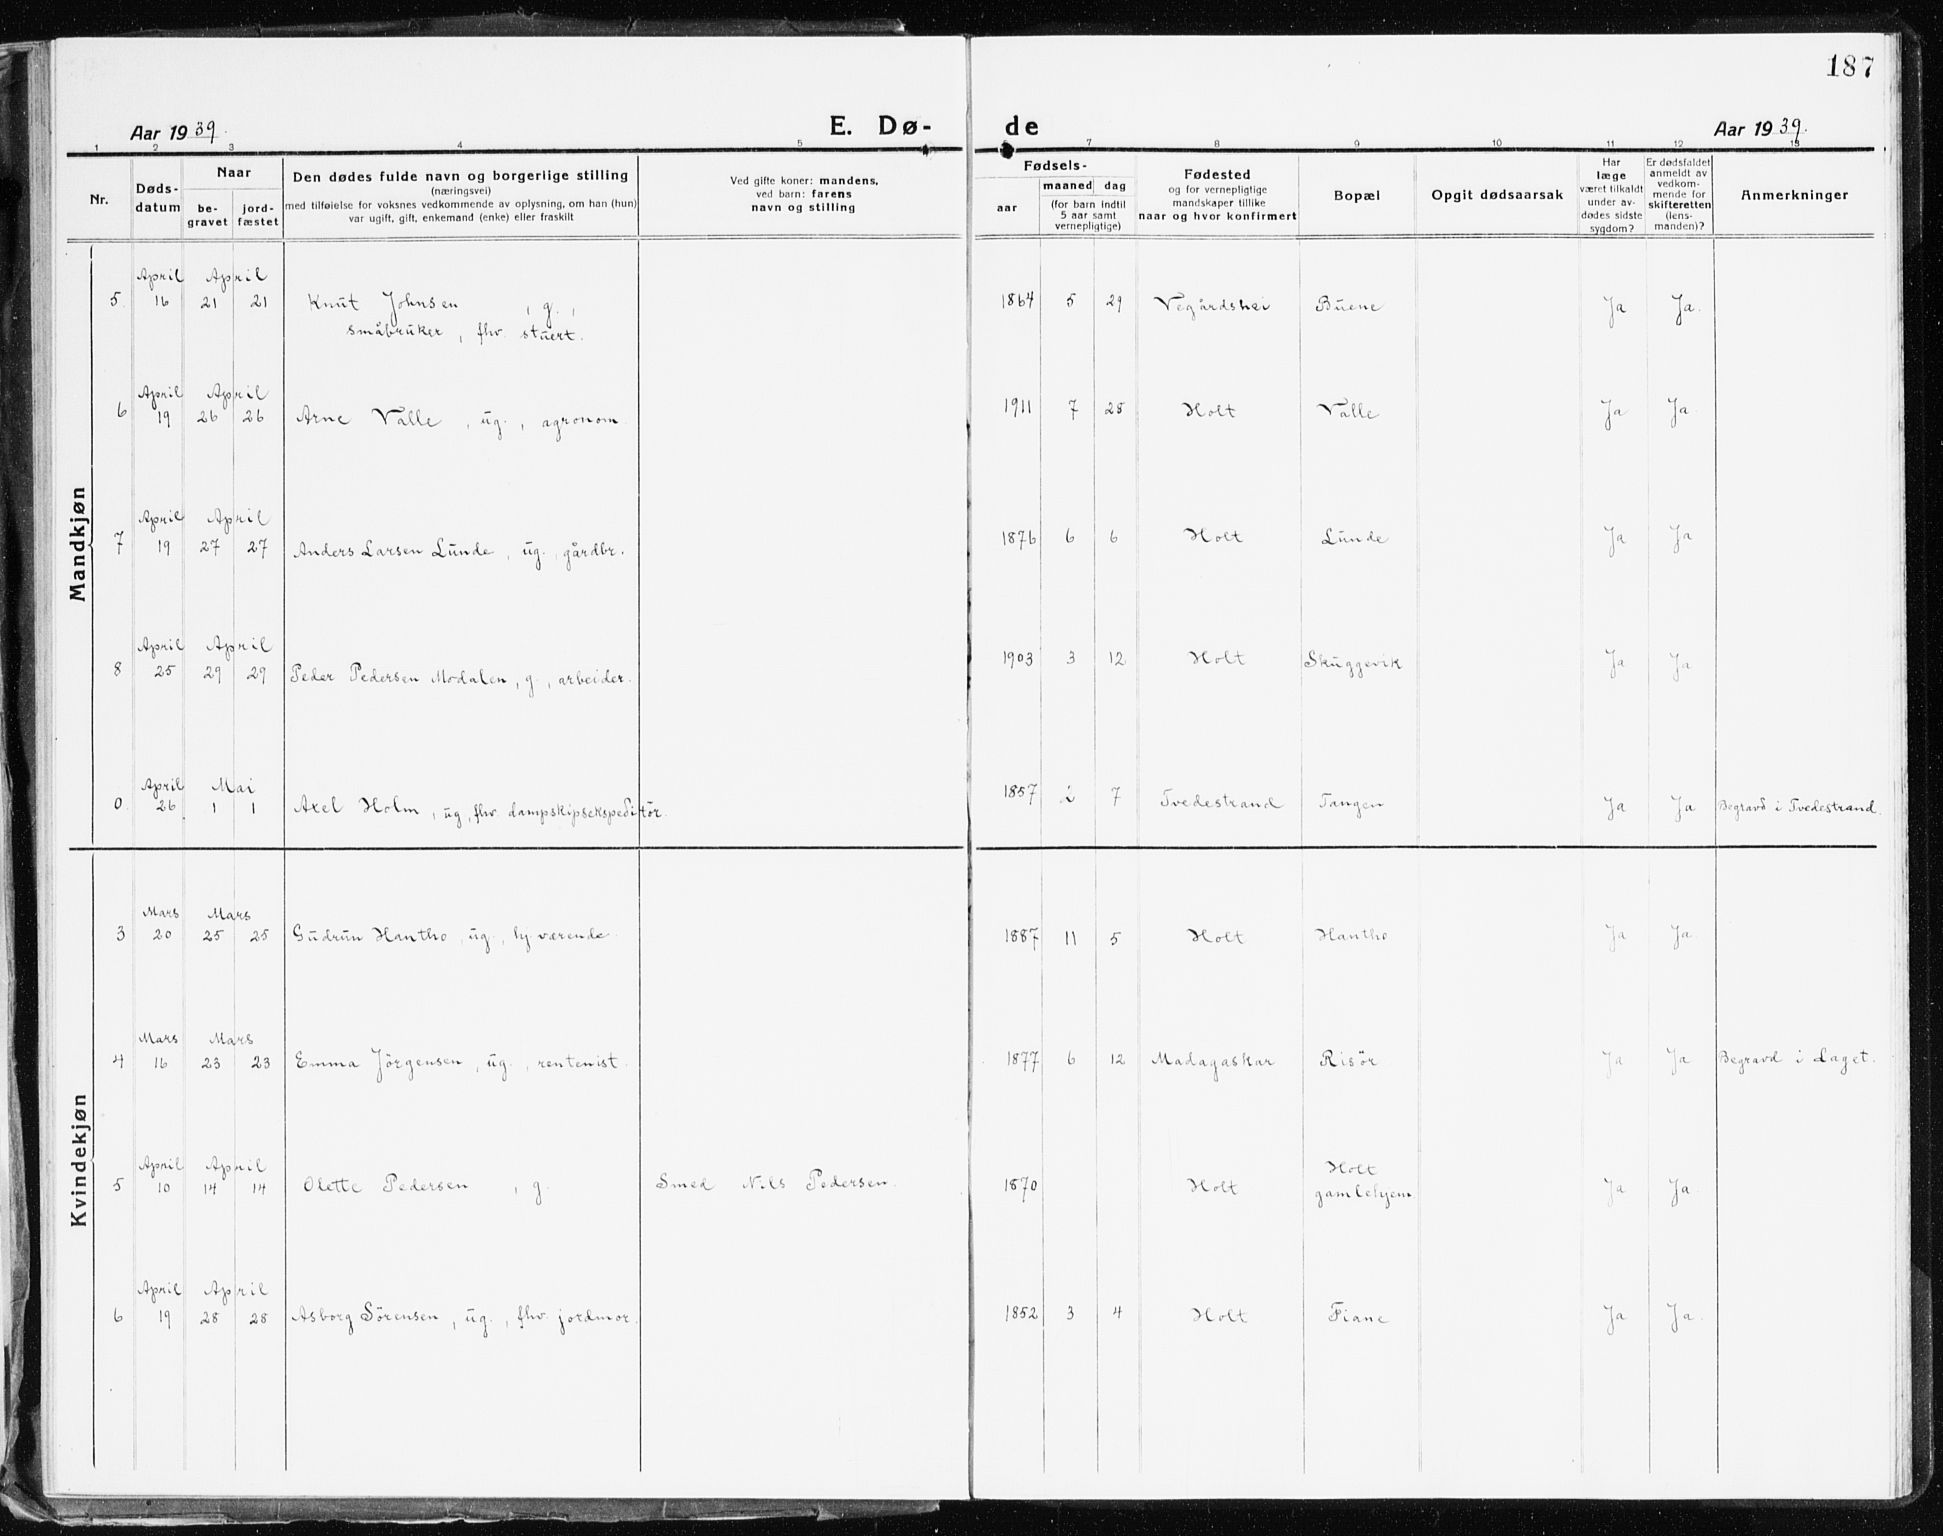 187
Aar 1939. E. Dø- de Aar 1939.
1 2 3 4 5 7 8 9 10 11 12 13
Nr. Døds-datum Naar be-gravet jord-fæstet
Den dødes fulde navn og borgerlige stilling
(næringsvei)
med tilføielse for voksnes vedkommende av oplysning, om han (hun)
var ugift, gift, enkemand (enke) eller fraskilt
Ved gifte koner: mandens,
ved barn: farens
navn og stilling
Fødsels-
aar maaned dag
(for barn indtil
5 aar samt
vernepligtige)
Fødested
og for vernepligtige
mandskaper tillike
naar og hvor konfirmert
Bopæl
Opgit dødsaarsak
Har
læge
været tilkaldt
under av-
dødes sidste
sygdom?
Er dødsfaldet
anmeldt av
vedkom-
mende for
skifteretten
(lens-
manden)?
Anmerkninger
Mandkjøn
April April
5. 16 21 21 Knut Johnsen , g., 1864 5 29 Vegårdshei Buene Ja Ja.
småbruker, fhv. stuert.
April April
6 19 26 26 Arne Valle, ug., agronom. 1911 7 28 Holt Valle Ja Ja.
April April
7 19 27 27 Anders Larsen Lunde, ug., gårdbr. 1876 6 6 Holt Lunde Ja Ja
April April
8 25 29 29 Peder Pedersen Modalen, g., arbeider. 1903 3 12 Holt Skuggevik Ja Ja
April Mai
0. 26 1 1 Axel Holm, ug, fhv. dampskipsekspeditør. 1857 2 7 Tvedestrand Tangen Ja Ja Begravd i Tvedestrand.
Kvindekjøn
Mars Mars
3 20 25 25 Gudrun Hantho, ug., hj. værende. 1887 11 5 Holt Hantho Ja Ja.
Mars Mars
4 16 23 23 Emma Jörgensen, ug., rentenist. 1877 6 12 Madagaskar Risör Ja Ja Begravd i Laget.
April April
5 10 14 14 Olette Pedersen , g. Smed Nils Pedersen. 1870 Holt Holt
gamlehjem Ja Ja.
April April
6 19 28 28 Asborg Sörensen, ug., fhv. jordmor. 1852 3 4 Holt Fiane Ja Ja.